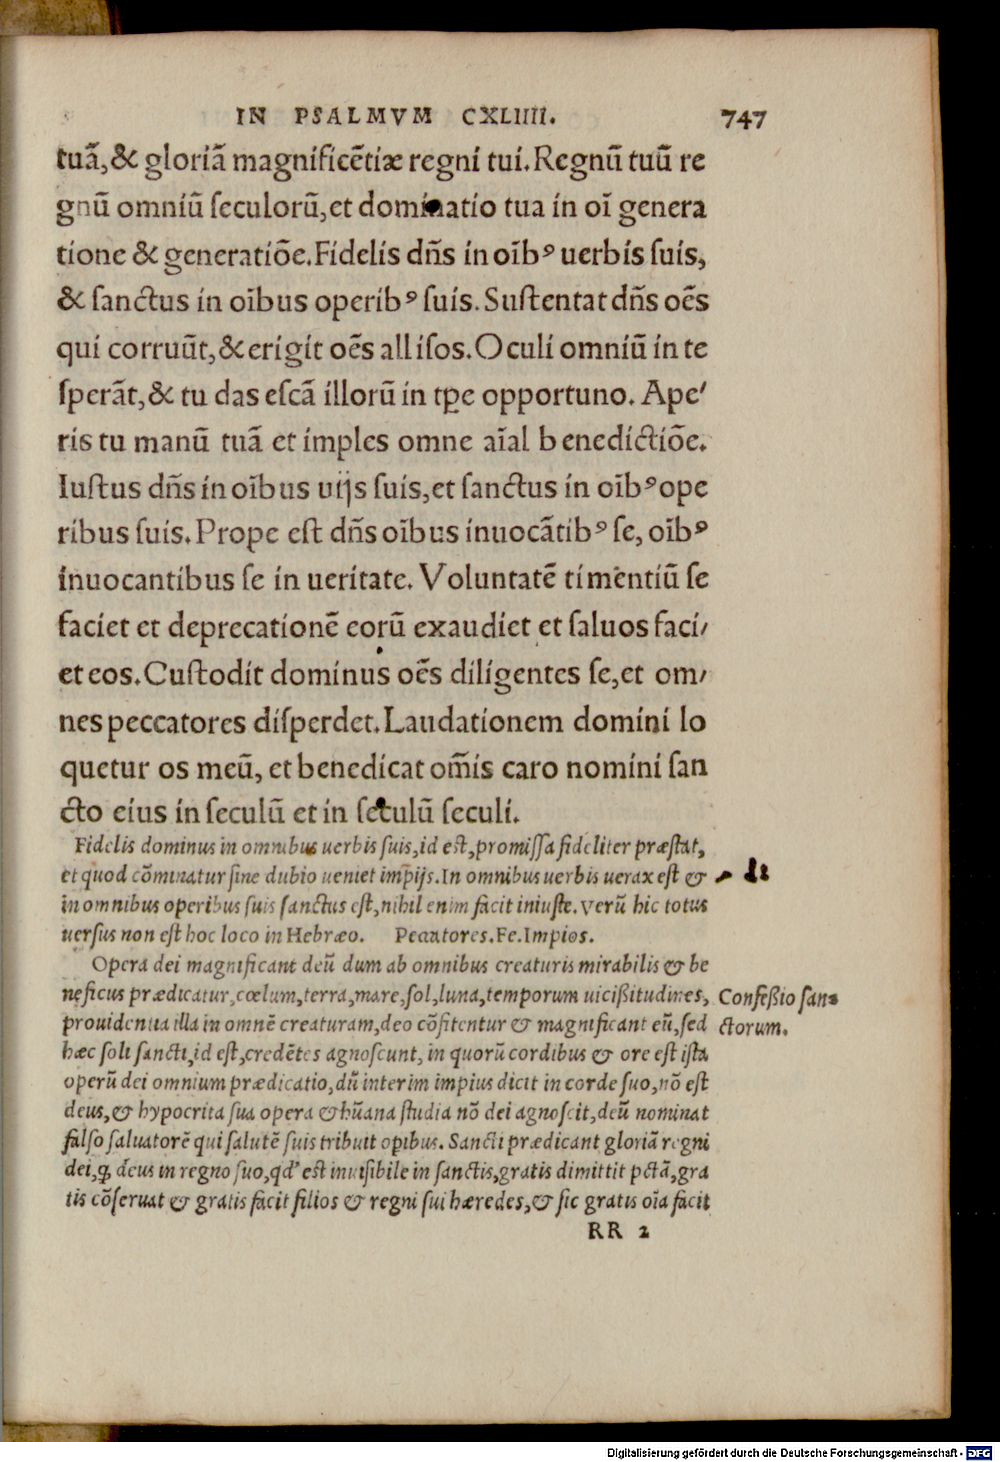 IN PSALMVM CXLIIII. 747
tuā,& gloriā magnificētiæ regni tui.Regnū tuū re
gnū omniū ſeculorū,et dominatio tua in oī genera
tione & generatiōe.Fidelis dn̄s in oībꝰ uerbis ſuis,
& ſanctus in oībus operibꝰ ſuis.Suſtentat dn̄s oēs
qui corruūt,& erigit oēs alliſos.Oculi omniū in te
ſperāt,& tu das eſcā illorū in tp̄e opportuno. Ape⸗
ris tu manū tuā et imples omne aīal benedictiōe.
Iuſtus dn̄s in oībus uijs ſuis,et ſanctus in oībꝰ ope
ribus ſuis.Prope eſt dn̄s oībus inuocātibꝰ ſe, oībꝰ
inuocantibus ſe in ueritate. Voluntatē timentiū ſe
faciet et deprecationē eorū exaudiet et ſaluos faci⸗
et eos.Cuſtodit dominus oēs diligentes ſe,et om⸗
nes peccatores diſperdet.Laudationem domini lo
quetur os meū, et benedicat om̄is caro nomini ſan
cto eius in ſeculū et in ſeculū ſeculi.
Fidelis dominus in omnibus uerbis ſuis,id eſt,promiſſa fideliter præſtat,
et quod cōminatur ſine dubio ueniet impijs.In omnibus uerbis uerax eſt &
in omnibus operibus ſuis ſanctus eſt,nihil enim facit iniuſte.Verū hic totus
uerſus non eſt hoc loco in Hebræo. Peccatores.Fe.Impios.
Opera dei magnificant deū dum ab omnibus creaturis mirabilis & be
neficus prædicatur,cœlum,terra,mare,ſol,luna,temporum uicißitudines,
Confeßio ſan⸗
ctorum.
prouidentia illa in omnē creaturam,deo cōfitentur & magnificant eū,ſed
hæc ſoli ſancti,id eſt,credētes agnoſcunt, in quorū cordibus & ore eſt iſta
operū dei omnium prædicatio,dū interim impius dicit in corde ſuo,nō eſt
deus,& hypocrita ſua opera & hūana ſtudia nō dei agnoſcit,deū nominat
falſo ſaluatorē qui ſalutē ſuis tribuit opibus. Sancti prædicant gloriā regni
dei,ꝙ deus in regno ſuo,qd' eſt inuiſibile in ſanctis,gratis dimittit pctā,gra
tis cōſeruat & gratis facit filios & regni ſui hæredes,& ſic gratis oīa facit
RR 2
Digitalisierung gefördert durch die Deutsche Forschungsgemeinschaft - DFG